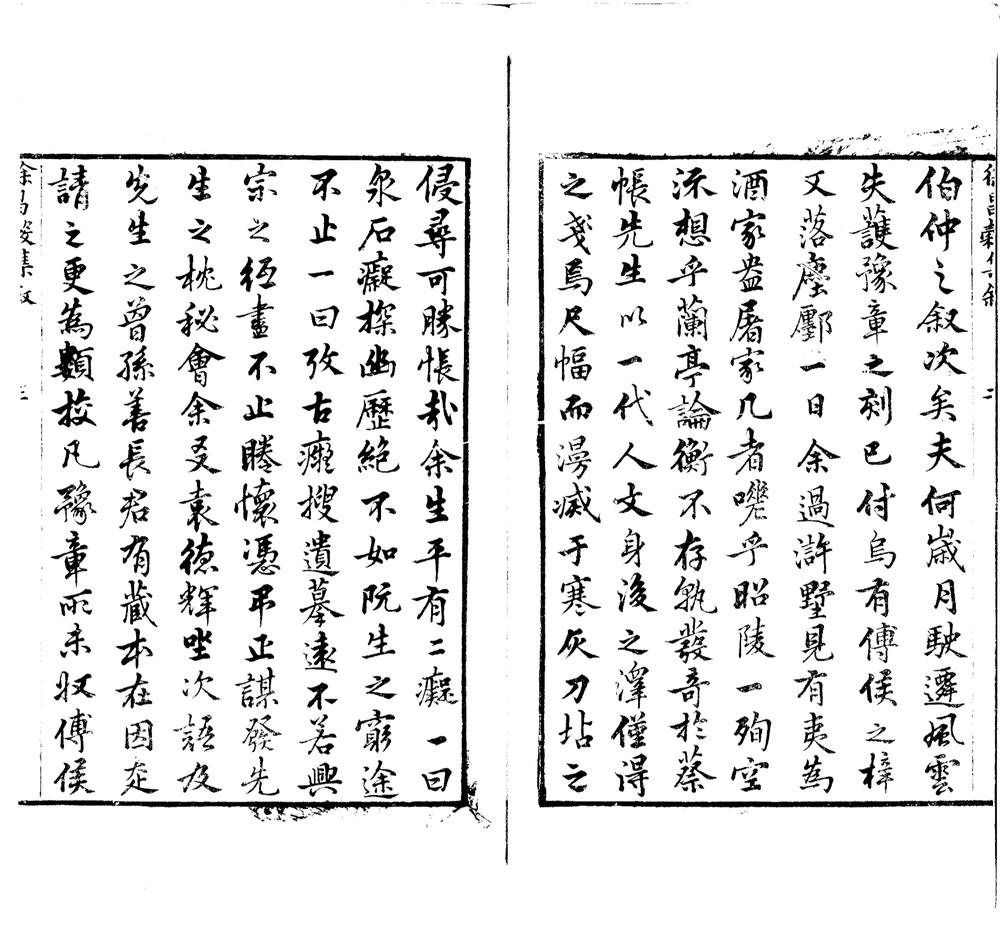 伯仲之叙次矣夫何歲月駛遷風雲
失護豫章之刻已付烏有傅侯之梓
又落塵鄽一日余過滸墅見有夷為
酒家盎屠家几者嘅乎昭陵一殉空
深想乎蘭亭論衡不存孰發奇於蔡
帳先生以一代人文身後之澤僅得
之戔焉尺幅而漫滅于寒灰刀坫之
侵尋可勝悵哉余生平有二癡一曰
泉石癡探幽歷絶不如阮生之窮途
不止一曰攷古癡搜遺摹遠不若興
宗之經畫不止睠懷憑弔正謀發先
生之枕秘會余友袁德輝坐次語及
先生之曾孫善長君有藏本在因走
請之更為類挍凡豫章所未收傅侯